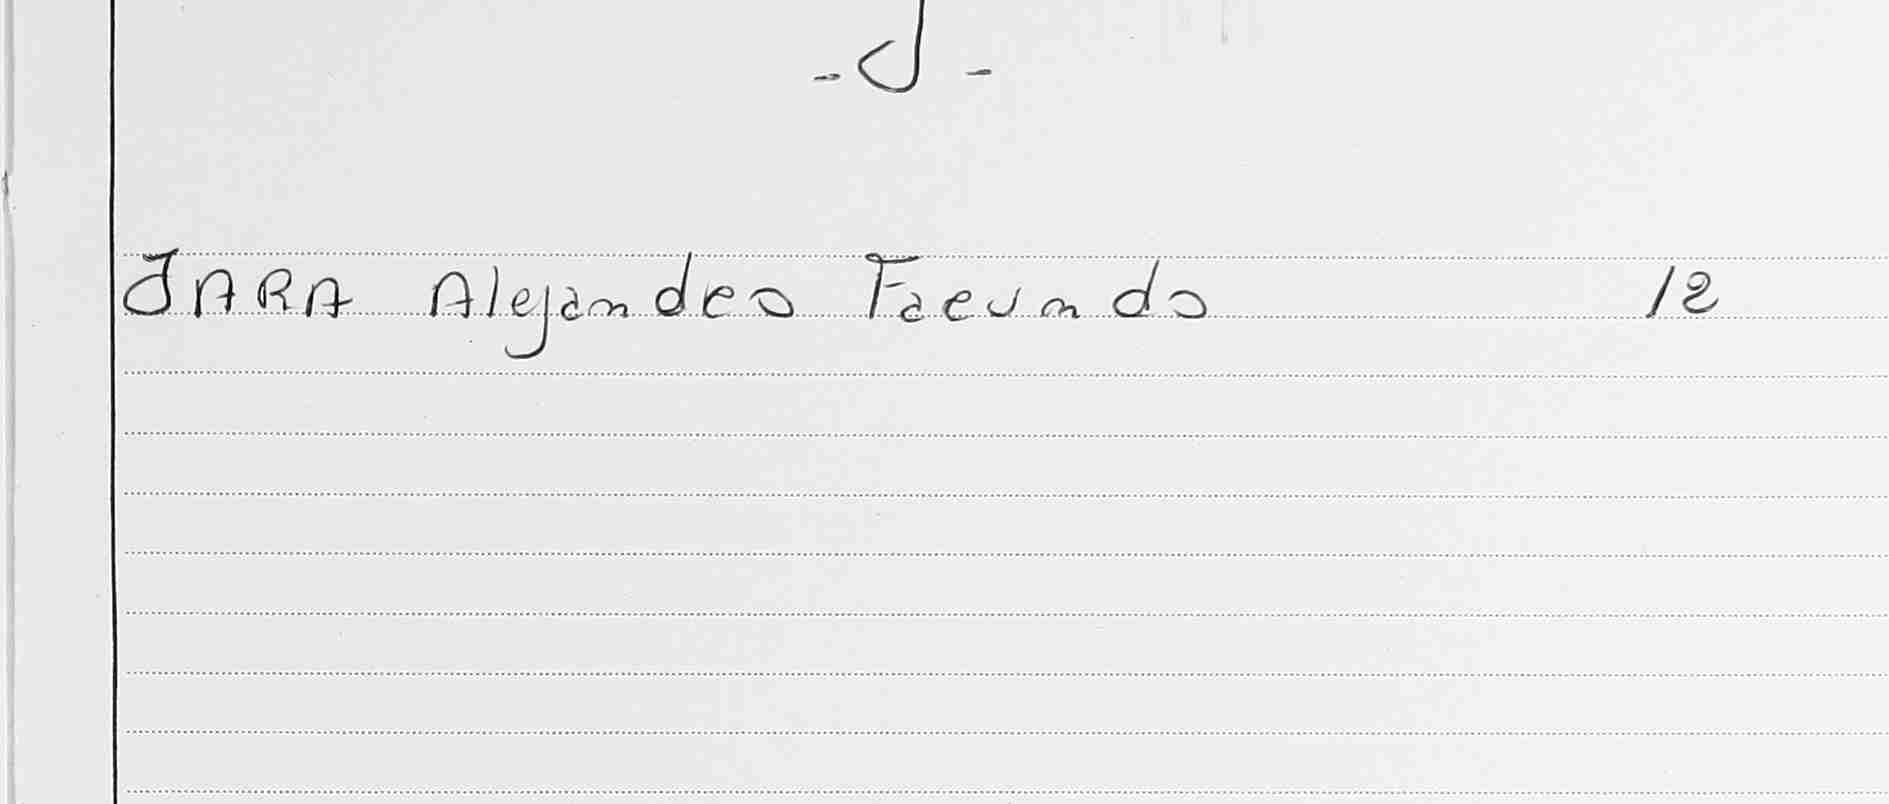 - J -
JARA Alejandro Facundo 12